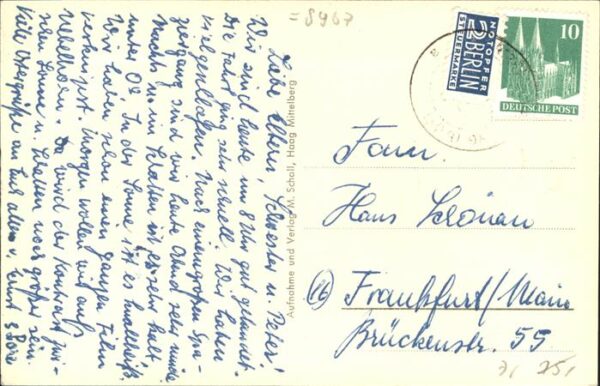 = 8967
Liebe Eltern, Schwester u. Peter!
Wir sind heute um 8 Uhr gut gelandet.
Die Fahrt ging sehr schnell. Wir haben
viel geschlafen. Nach einem großen Spa-
ziergang sind wir heute Abend sehr müde.
Nachts u. im Schatten ist es sehr kalt
unter 0°. In der Sonne ist es knallheiß.
Wir haben schon einen ganzen Film
verknipst. Morgen wollen wir aufs
Nebelhorn. Da wird der Kontrast zwi-
schen Sonne u. Schatten noch größer sein.
Viele Ostergrüße an Euch alle
Aufnahme und Verlag M. Schall, Haag Mittelberg
NOTOPFER
2 BERLIN
STEUERMARKE
10
DEUTSCHE POST
Fam.
Hans Schönau
(16) Frankfurt/Main
Brückenstr. 55